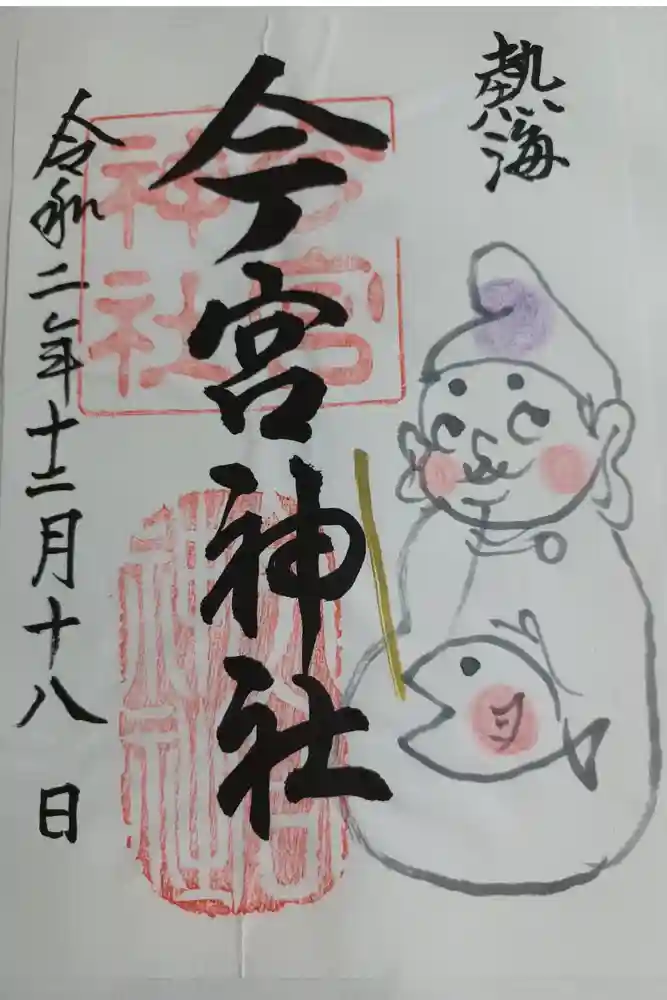 熱海
今宮神社
令和二年十二月十八日
今宮
神社